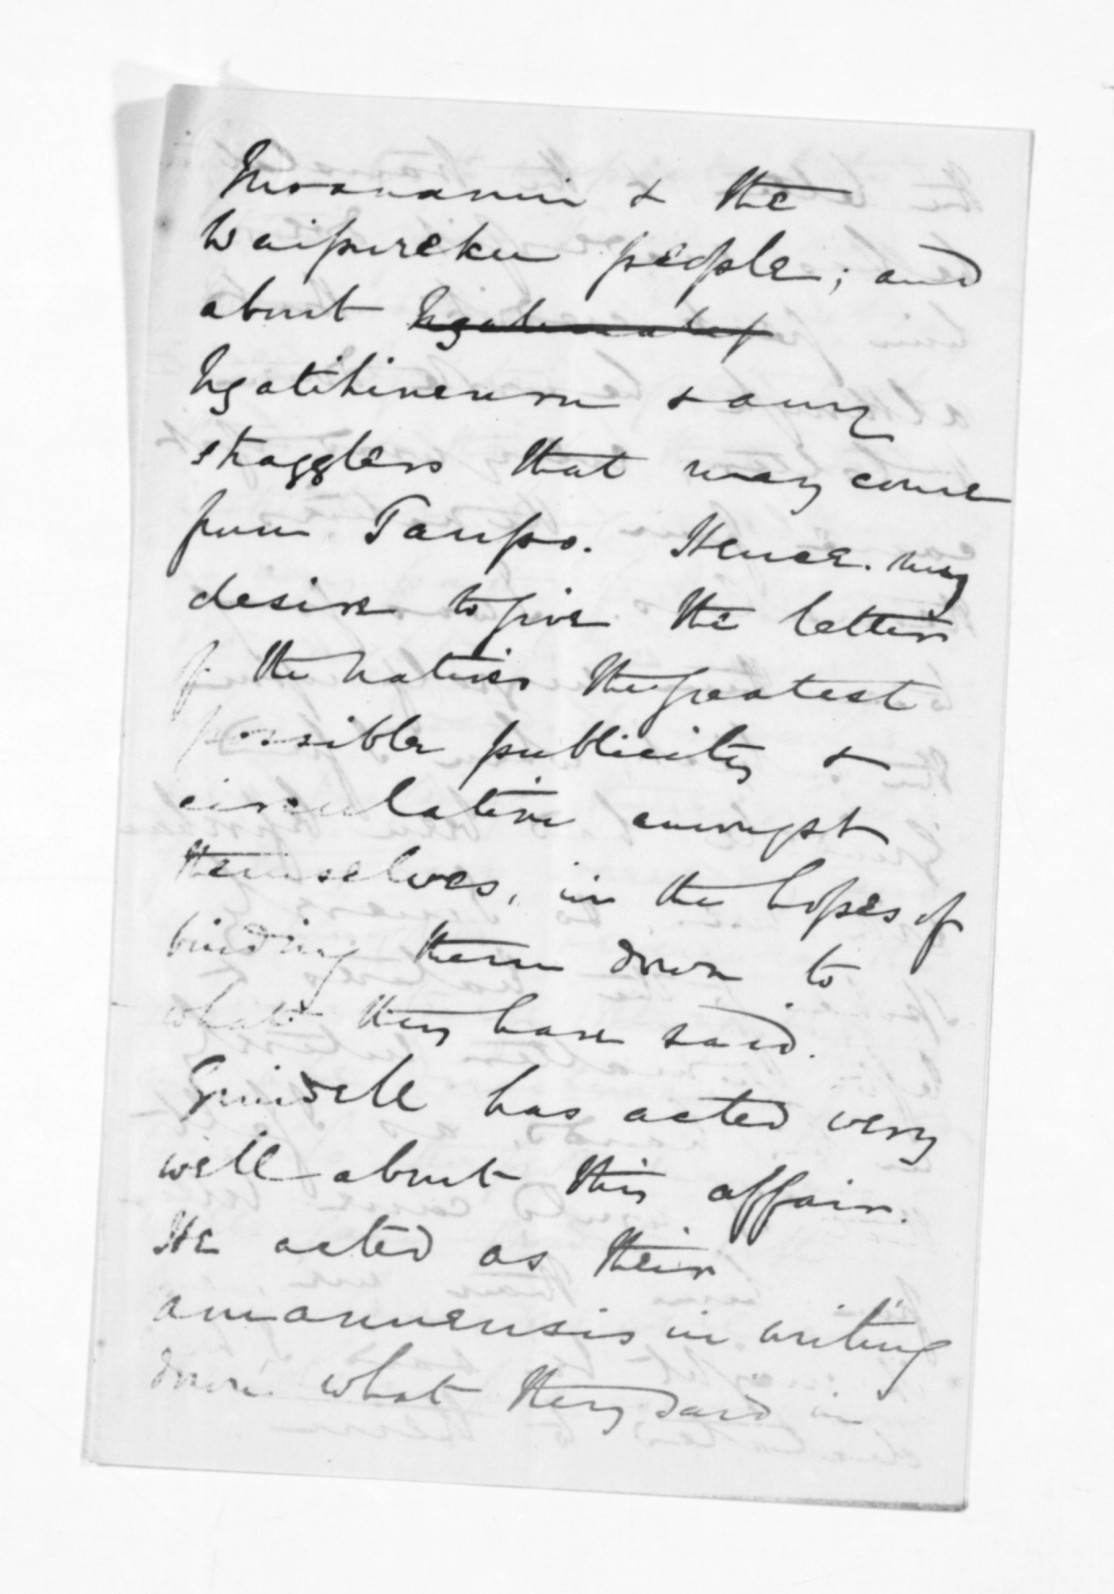 Moananui & the
Waipureku people; and
about
Ngatihineuru & any
stragglers that may come
from Taupo. Hence my
desire to give the letters
of the natives the greatest
possible publicity &
circulation amongst
themselves, in the hopes of
binding them down to
what they have said.
Grindell has acted very
well about this affair.
He acted as their
amanuensis in writing
down what they said in